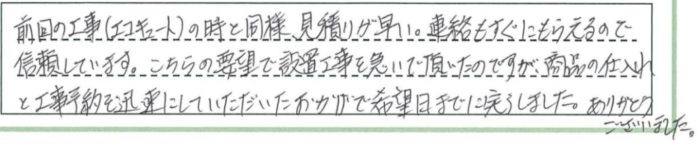 前回の工事(エコキュート)の時と同様、見積りが早い。連絡もすぐにもらえるので
信頼しています。こちらの要望で設置工事を急いで頂いたのですが、商品の仕入れ
と工事予約を迅速にしていただいたおかげで希望日までに完了しました。ありがとう
ございました。